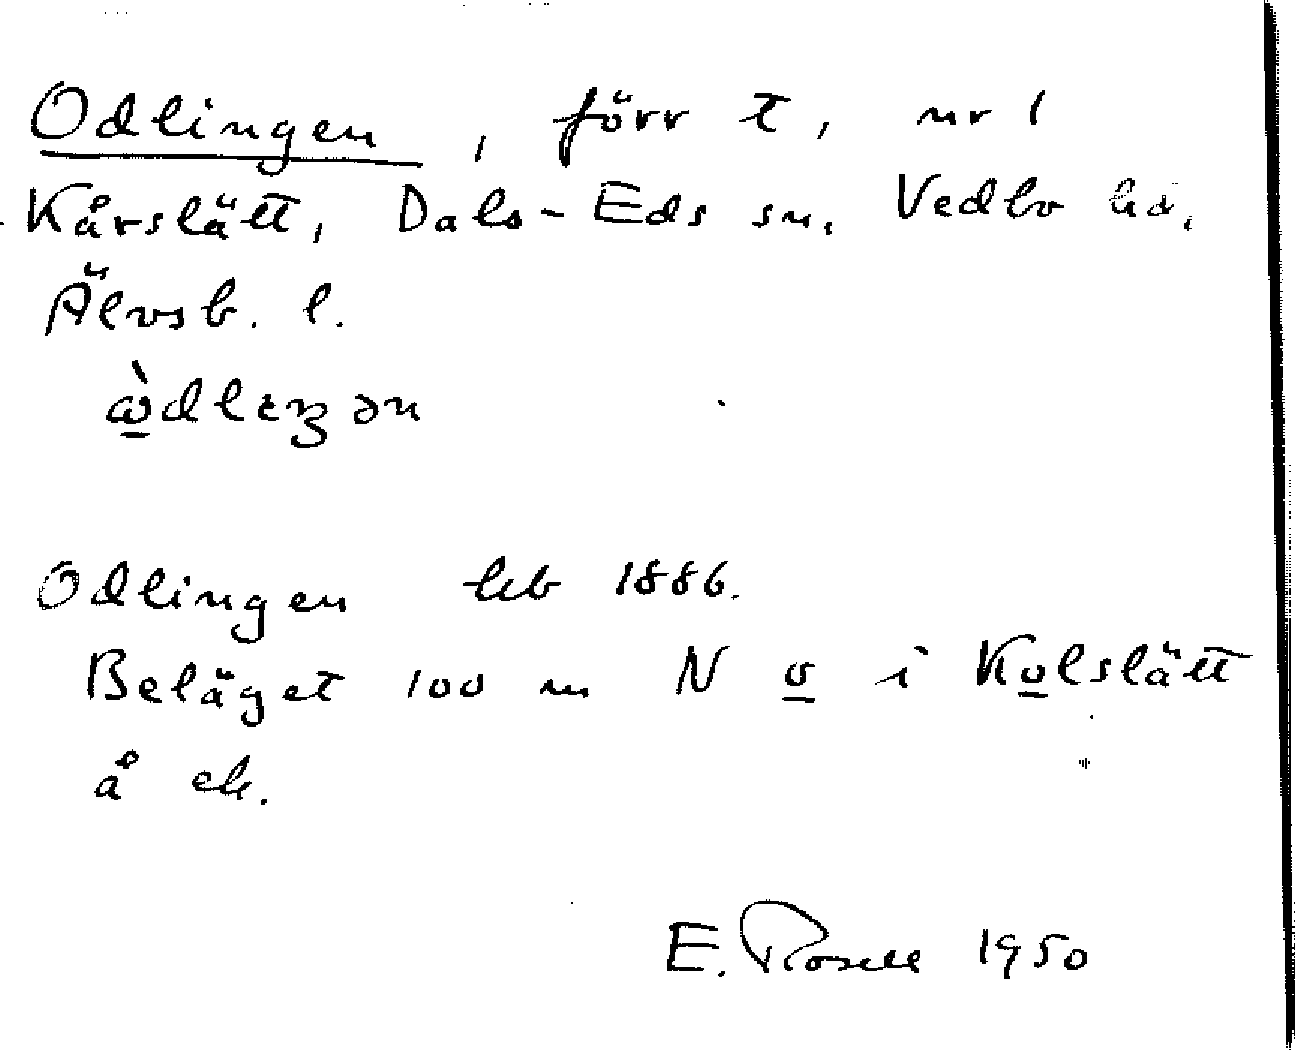 Odlingen, förr t, nr 1
Kårslätt, Dals-Eds sn. Vedbo hd.
Älvsb. l.
ὼ̱dlɩŋən
Odlingen hb 1886.
Beläget 100 m N o i Kolslätt
å ek.
E. Rosell 1950